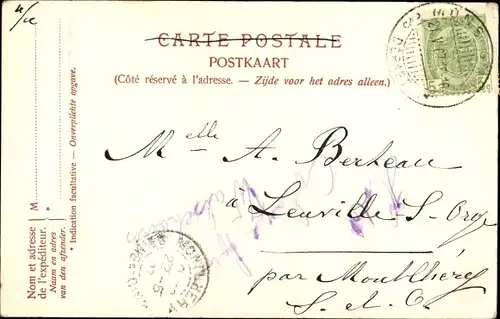 CARTE POSTALE
POSTKAART
(Côté réservé à l'adresse. – Zijde voor het adres alleen.)
Melle A. Berteau
à Leuville-S-Orge
par Montlhéry
S.-et-O.
M
* Indication facultative — Onverplichte opgave.
Nom et adresse
de l'expéditeur.
Naam en adres
van den afzender.
MONS